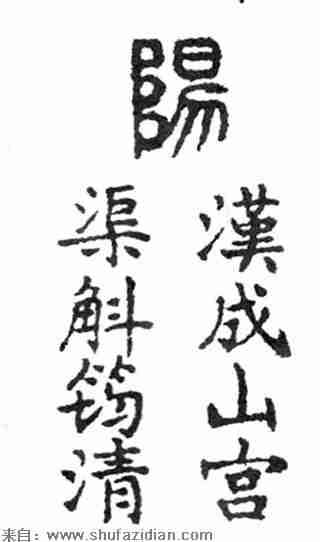 陽
漢成山宫
渠斛筠清
来自：www.shufazidian.com